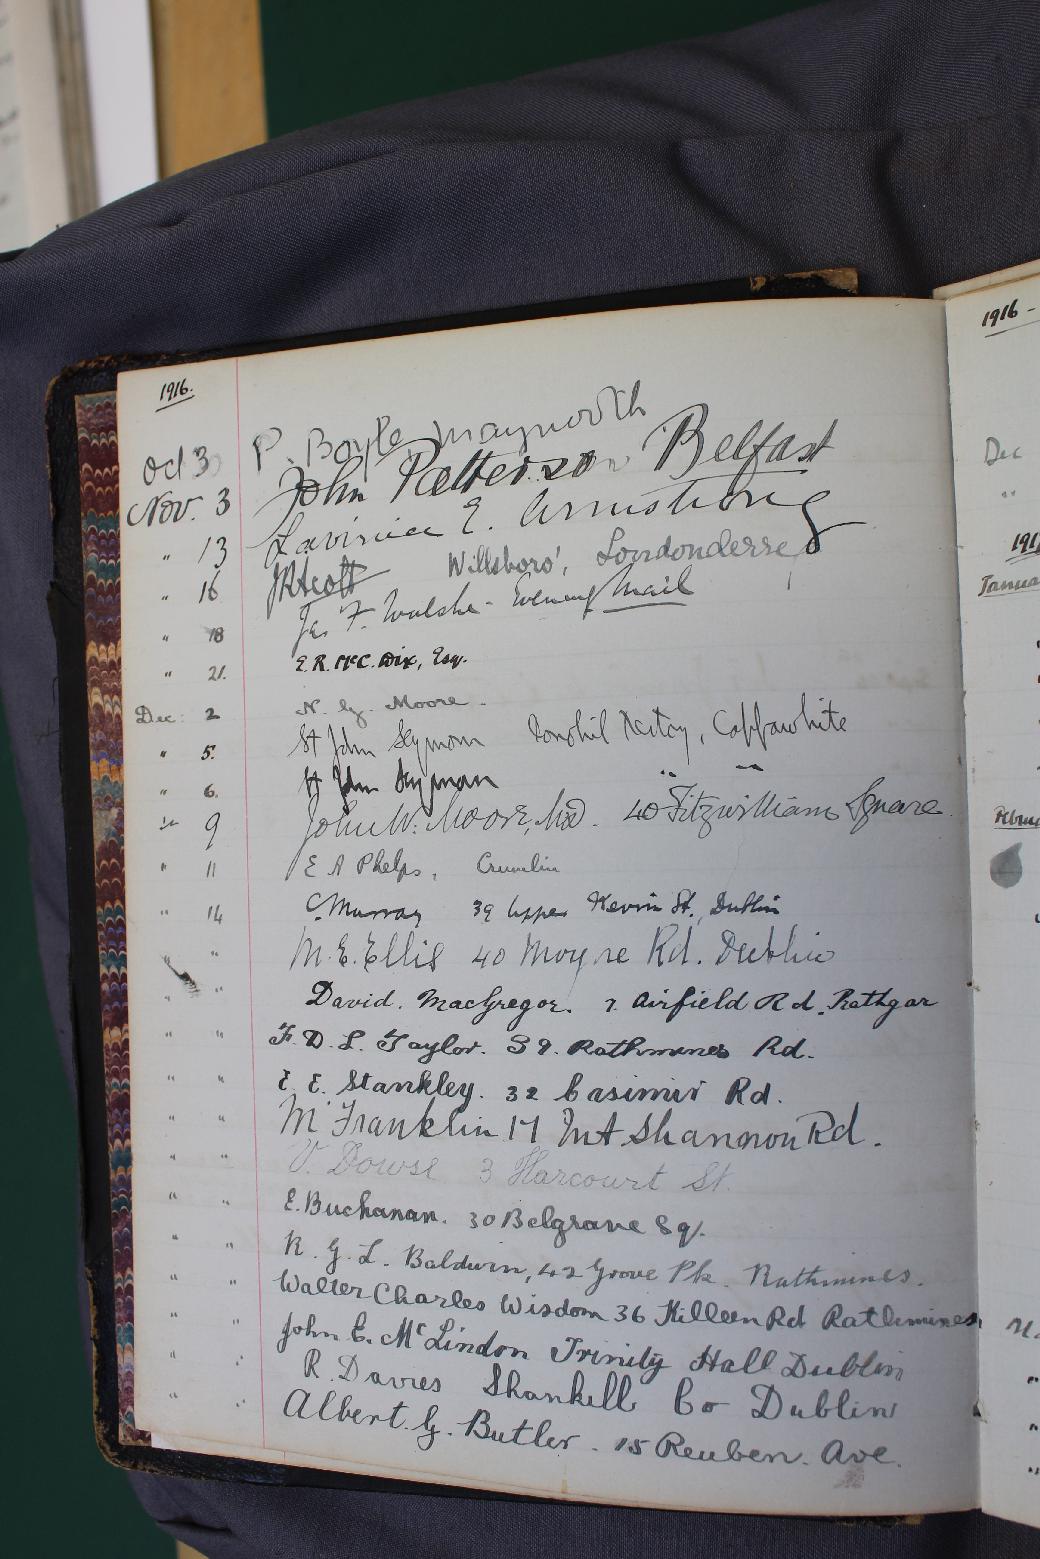 1916.
Oct 3 P. Boyle Maynooth
Nov. 3 John Patterson Belfast
" 13 Lavinia E. Armstrong
" 16 JRScott Willsboro', Londonderry
" 18 Jas. F. Walshe - Evening Mail
" 21. E.R. McC. Dix, Esq.
Dec: 2 N. Moore.
" 5. St John Seymour Rectory, Cappawhite
" 6. St John Seymour " "
" 9 John W. Moore, MD. 40 Fitzwilliam Square
" 11 E A Phelps, Crumlin
" 14 C. Murray 39 Upper Kevin St., Dublin
" " M.E. Ellis 40 Moyne Rd. Dublin
" " David. MacGregor. 7. Airfield Rd. Rathgar
" " F. D. L. Taylor. 39. Rathmines Rd.
" " E. E. Stankley. 32 Casimir Rd.
" " M Franklin 17 Mt Shannon Rd.
" " V. Dowse 3 Harcourt St.
" " E. Buchanan. 30 Belgrave Sq.
" " R. G. L. Baldwin, 42 Grove Pk. Rathmines.
" " Walter Charles Wisdom 36 Killeen Rd Rathmines
" " John C. McLindon Trinity Hall Dublin
" " R. Davies Shankill Co Dublin
" " Albert. G. Butler. 15 Reuben. Ave.
1916 -
Dec
"